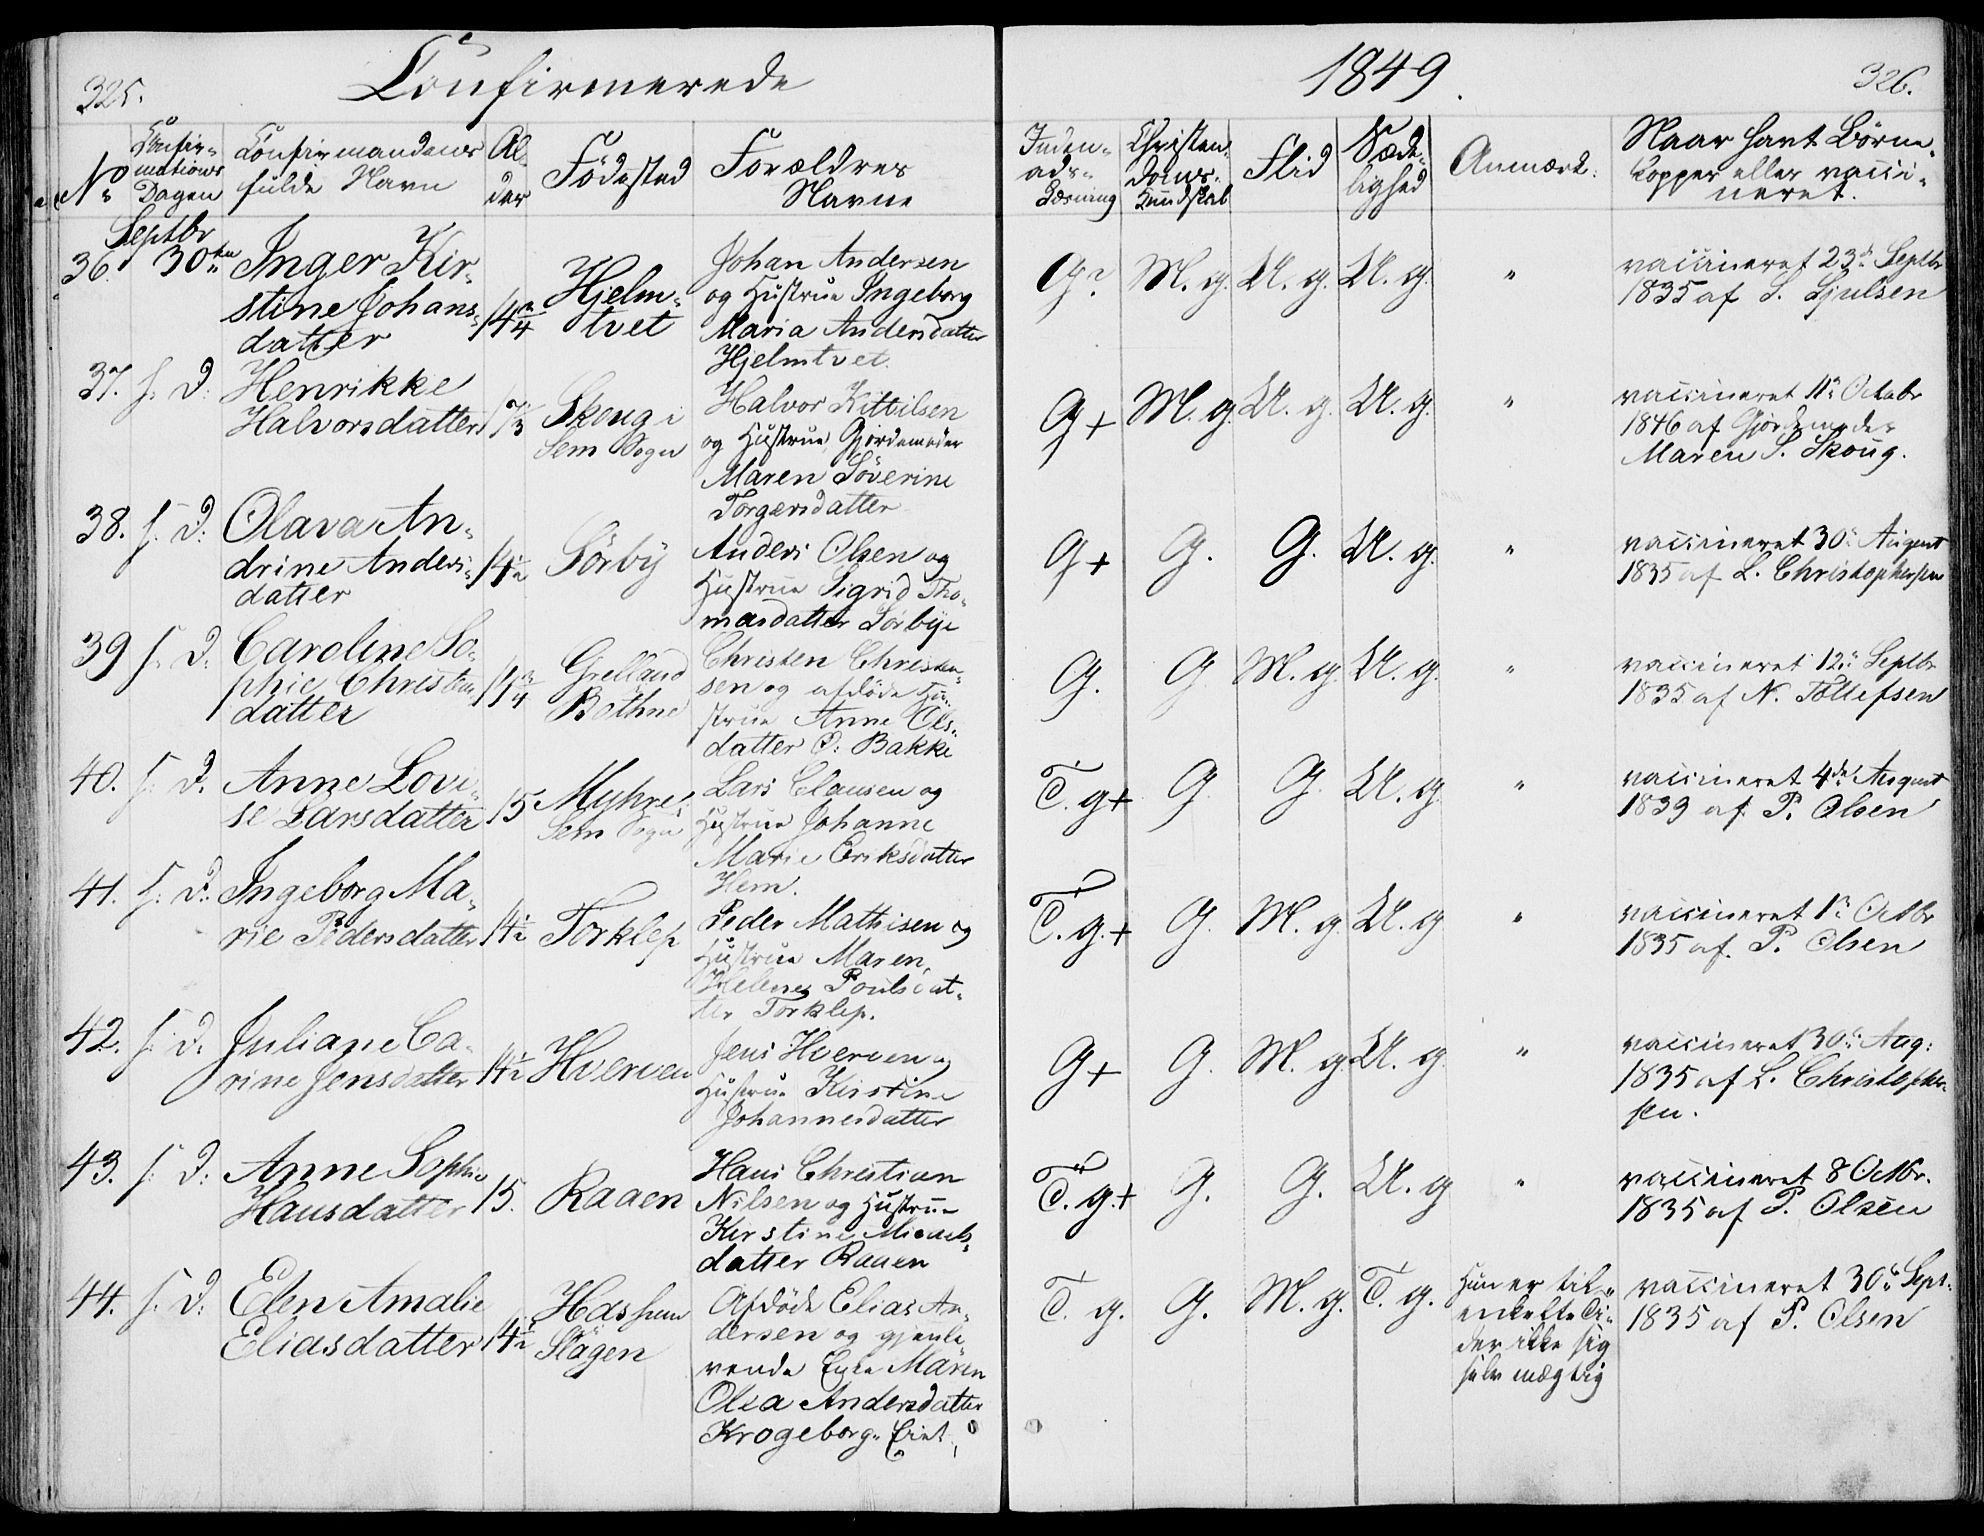 325.
Confirmerede
1849.
326.
No
Confir-
mations
Dagen
Confirmandens
fulde Navn
Al-
der
Födested
Forældres
Navne
Inden-
ads-
Læsning
Christen-
doms-
Kundskab
Flid
Sæde-
lighed
Anmærk:
Naar havt Börne-
kopper eller vacci-
neret.
Septbr
36. 30te Inger Kir-
stine Johans-
datter
14 3/4
Hjelm-
tvet
Johan Andersen
og Hustrue Ingeborg
Maria Andersdatter
Hjelmtvet.
G?
M. g.
U. g.
U. g.
"
vaccineret 23de Septbr
1835 af S. Sjulsen
37. s. D: Henrikke
Halvorsdatter
Skoug i
Sem Sogn
Halvor Kittilsen
og Hustrue Gjordemoder
Maren Söverine
Torgersdatter
G+
M. g.
U. g.
U. g.
"
vaccineret 11te Octobr
1846 af Gjordemoder
Maren S. Skoug.
38. s. D: Olava An-
drine Anders-
datter
14 1/2
Sörby
Anders Olsen og
Hustrue Sigrid Tho-
masdatter Sörbye
G+
G.
G.
U. g.
"
vaccineret 30te August
1835 af L. Christophersen
39 s. D: Caroline So-
phie Christens
datter
14 3/4
Grelland
Böthne
Christen Christen-
sen og afdöde Hu-
strue Anne Ols-
datter O: Bakke
G.
G
M. g.
U. g.
"
vaccineret 12te Septbr
1835 af N. Tollefsen
40. s. D. Anne Lovi-
se Larsdatter
15
Myhre i
Sem Sogn
Lars Clausen og
Hustrue Johanne
Marie Eriksdatter
Hem.
T. g+
G
G.
U. g
"
vaccineret 4de August
1839 af P. Olsen
41. s. D: Ingeborg Ma-
rie Pedersdatter
14 1/2
Torklep
Peder Mathisen og
Hustrue Maren
Helene Poulsdat-
ter Torklep.
T. g.+
G.
M. g.
U. g
"
vaccineret 1te Octbr
1835 af P. Olsen
42. s. D. Juliane Ca-
rine Jensdatter
14 1/2
Hverven
Jens Hverven og
Hustrue Kirstine
Johannesdatter
G+
G.
M. g.
U. g.
"
vaccineret 30te Aug:
1835 af L. Christopher-
sen.
43. s. D: Anne Sophie
Hansdatter
15.
Raaen
Hans Christian
Nilsen og Hustrue
Kirstine Micaels-
datter Raaen
T. g.+
G.
G.
U. g
"
vaccineret 8 Octbr.
1835 af P. Olsen
44. s. D: Elen Amalie
Eliasdatter
14 1/2
Hassum
Slagen
Afdöde Elias An-
dersen og gjenle-
vende Enke Maren
Olea Andersdatter
Krogeborg-Eiet.
T. g.
G.
M. g.
T. g.
Hun er til
enkelte Ti-
der ikke sig
selv mægtig
vaccineret 30te Sept:
1835 af P. Olsen